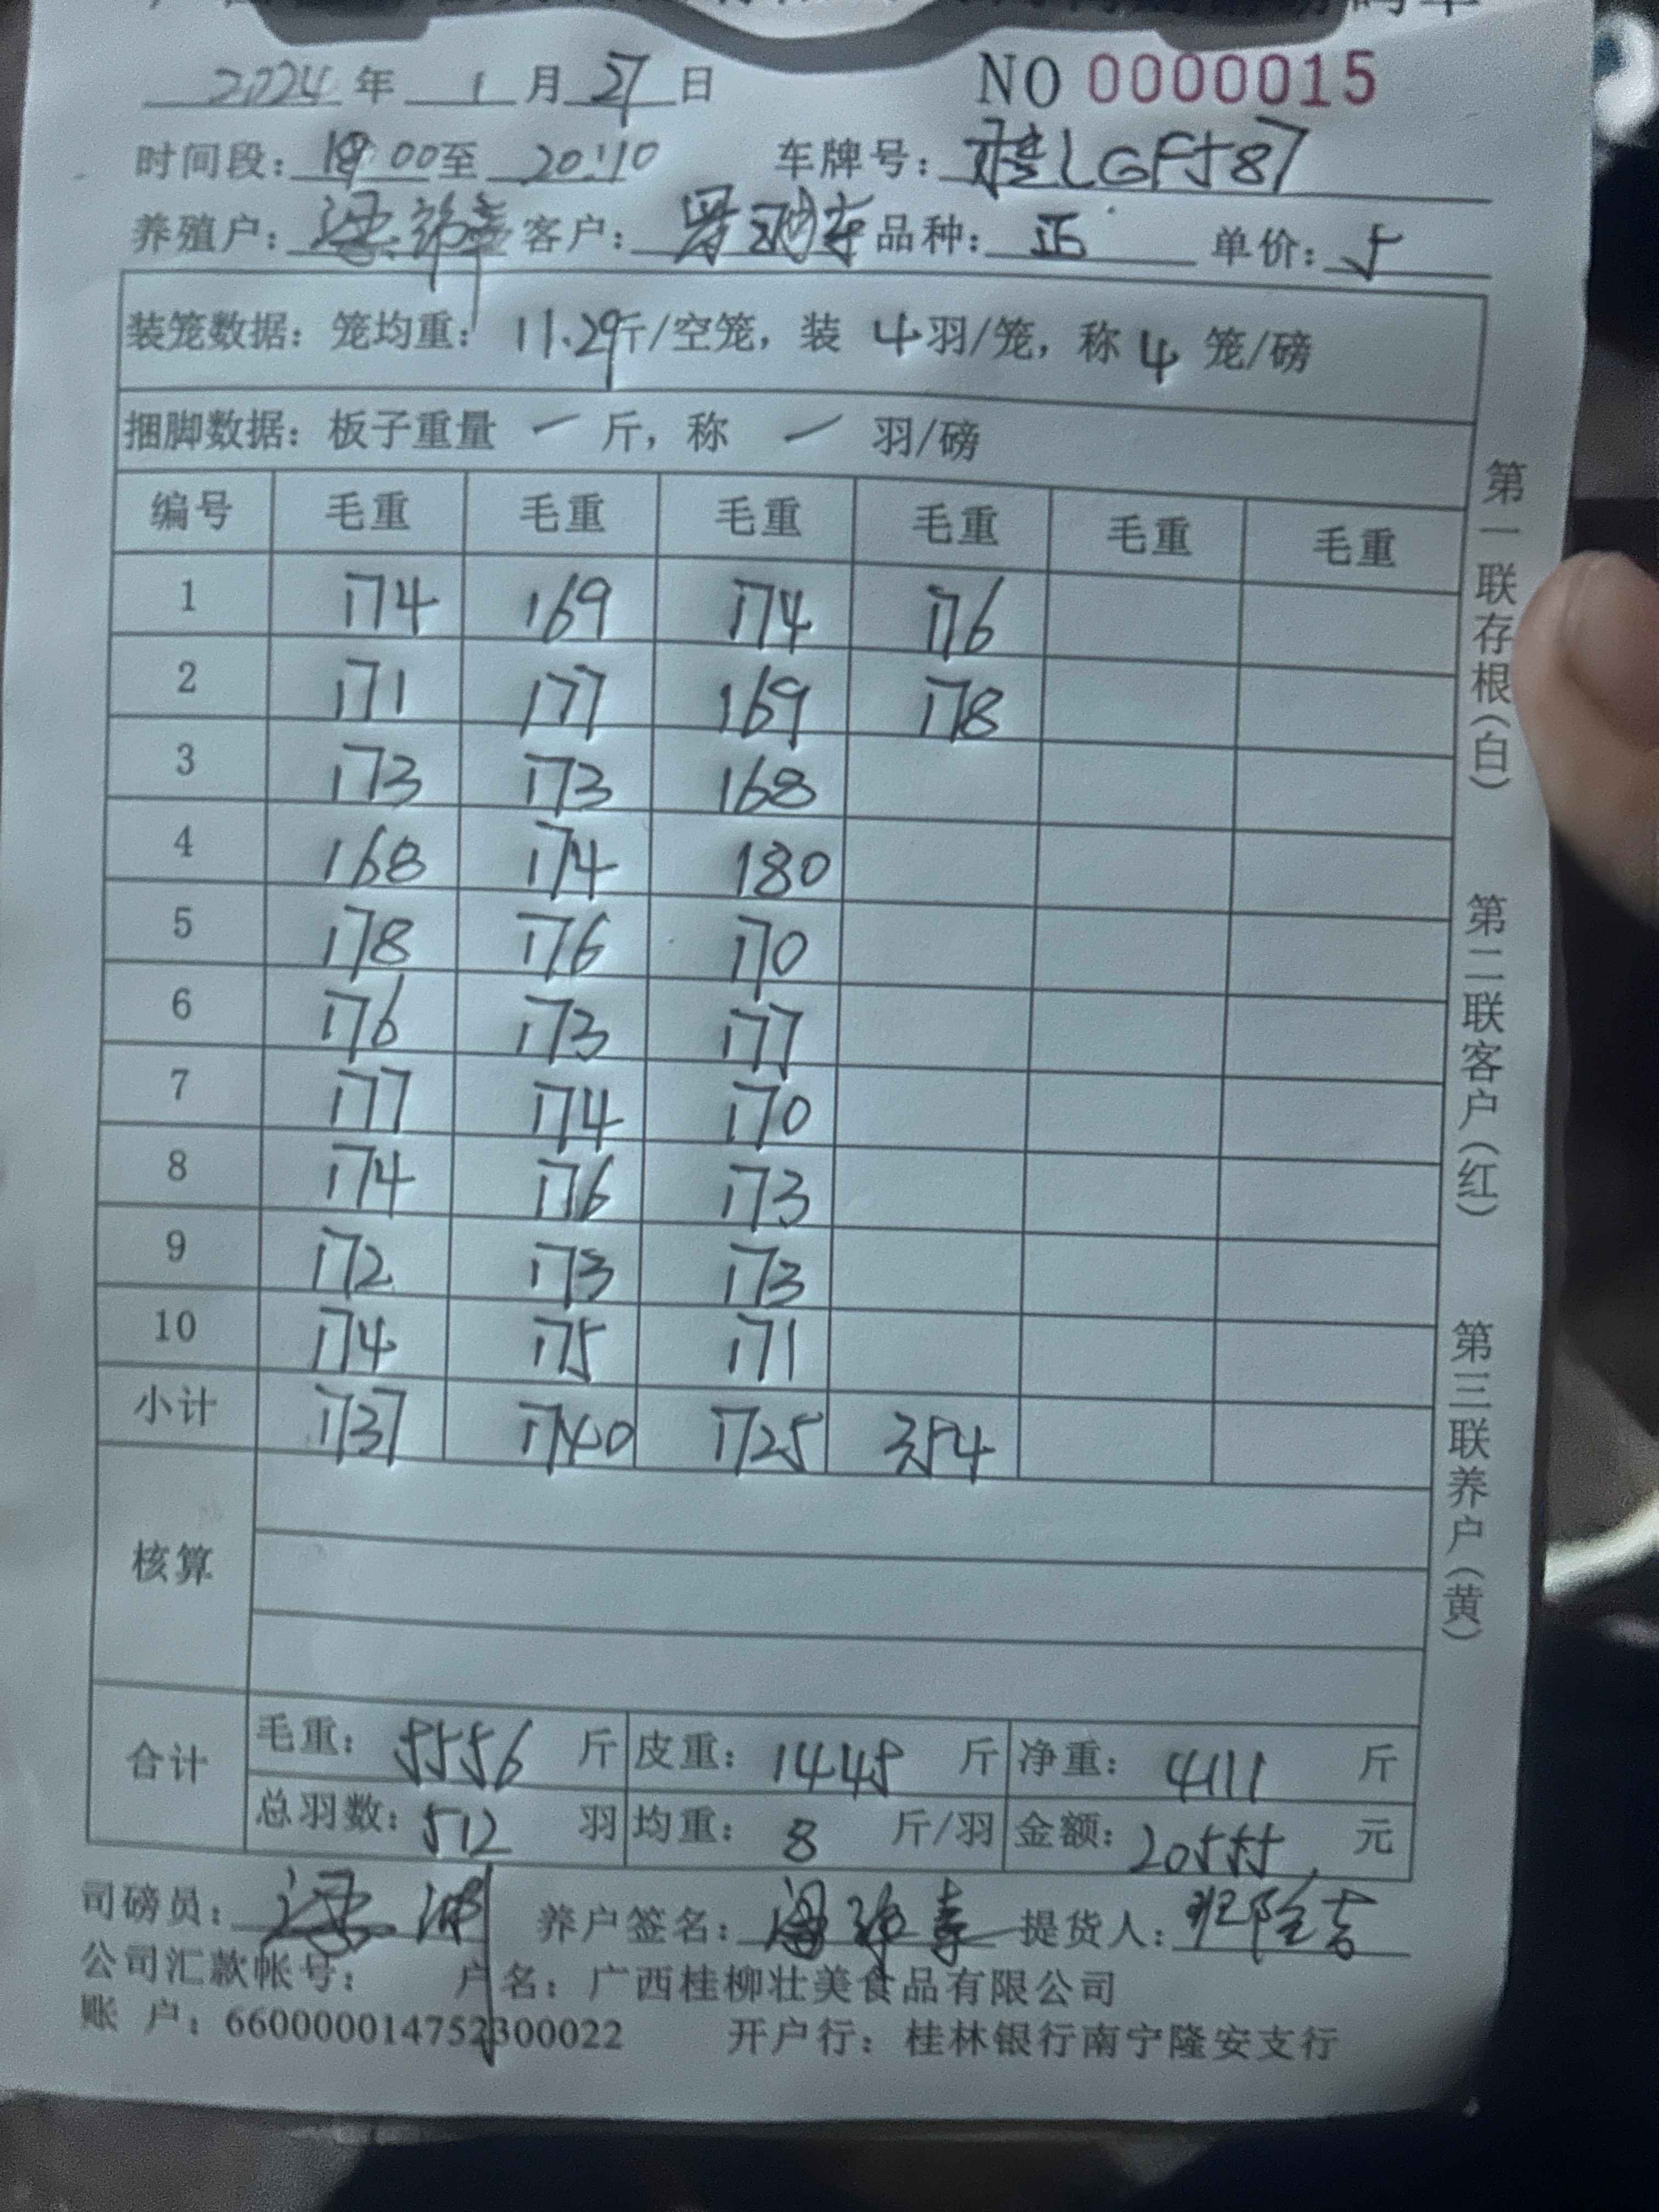 2024 年 1 月 27 日 NO 0000015
时间段: 18:00 至 20:10 车牌号: 桂LGF587
养殖户: 客户: 品种: 正 单价: 5
装笼数据: 笼均重: 11.29 斤/空笼, 装 4 羽/笼, 称 4 笼/磅
捆脚数据: 板子重量 一 斤, 称 一 羽/磅
编号 毛重 毛重 毛重 毛重 毛重 毛重
1 174 169 174 176
2 171 177 169 178
3 173 173 168
4 168 174 180
5 178 176 170
6 176 173 177
7 177 174 170
8 174 176 173
9 172 173 173
10 174 175 171
小计 1737 1740 1725 354
核算
合计 毛重: 5556 斤 皮重: 1445 斤 净重: 4111 斤
总羽数: 512 羽 均重: 8 斤/羽 金额: 20555 元
司磅员: 养户签名: 提货人: 班隆吉
公司汇款帐号: 户名: 广西桂柳壮美食品有限公司
账 户: 660000014752300022 开户行: 桂林银行南宁隆安支行
第一联存根(白) 第二联客户(红) 第三联养户(黄)